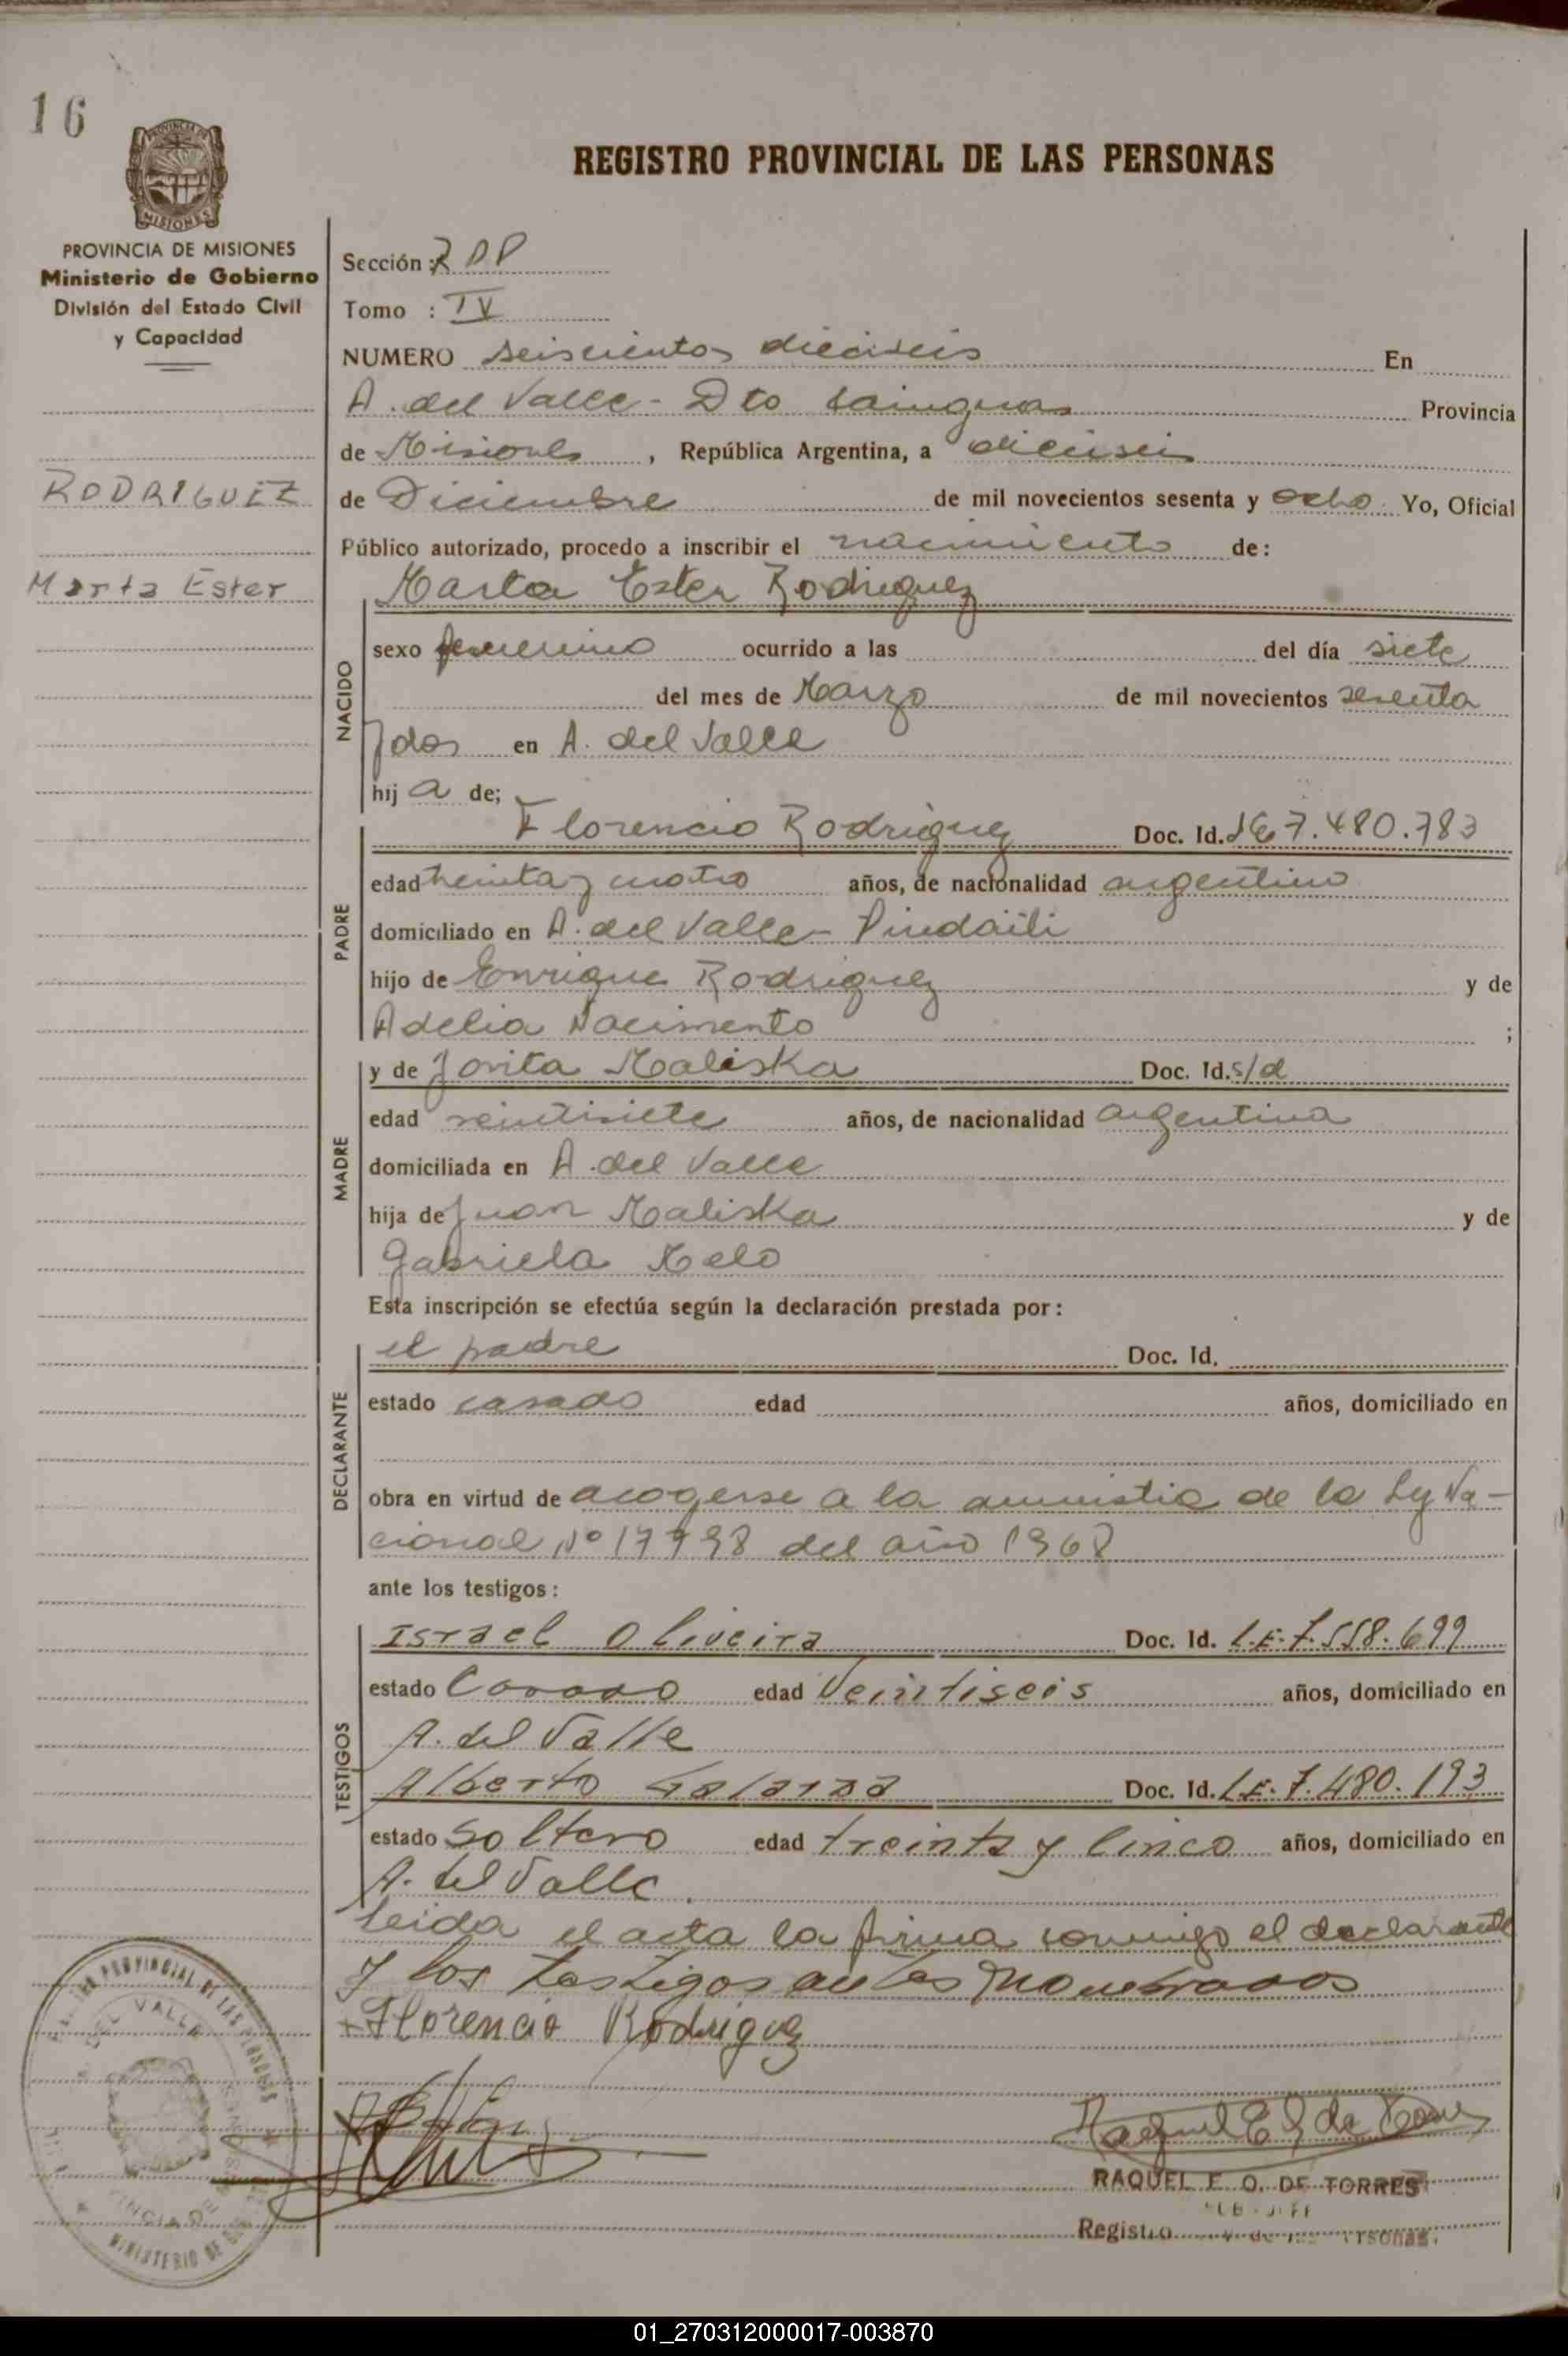 16
PROVINCIA DE MISIONES
Ministerio de Gobierno
División del Estado Civil
y Capacidad
RODRIGUEZ
Marta Ester
REGISTRO PROVINCIAL DE LAS PERSONAS
Sección : RDP
Tomo : IV
NUMERO seiscientos dieciseis En
A. del Valle - Dto Cainguas Provincia
de Misiones, República Argentina, a dieciseis
de Diciembre de mil novecientos sesenta y ocho Yo, Oficial
Público autorizado, procedo a inscribir el nacimiento de:
Marta Ester Rodriguez
NACIDO
sexo femenino ocurrido a las del día siete
del mes de Marzo de mil novecientos sesenta
y dos en A. del Valle
hij a de;
PADRE
Florencio Rodriguez Doc. Id. LE 7.480.783
edad treinta y cuatro años, de nacionalidad argentino
domiciliado en A. del Valle - Pindaiti
hijo de Enrique Rodriguez y de
Adelia Nacimento ;
MADRE
y de Jovita Maliska Doc. Id. s/d
edad veintisiete años, de nacionalidad argentina
domiciliada en A. del Valle
hija de Juan Maliska y de
Gabriela Melo
Esta inscripción se efectúa según la declaración prestada por:
DECLARANTE
el padre Doc. Id.
estado casado edad años, domiciliado en
obra en virtud de acogerse a la amnistia de la Ley Na-
cional Nº 17998 del año 1968
ante los testigos:
TESTIGOS
Israel Oliveira Doc. Id. L.E. 7.558.699
estado Casado edad Veintiseis años, domiciliado en
A. del Valle
Alberto Galarza Doc. Id. L.E. 7.480.193
estado Soltero edad treinta y Cinco años, domiciliado en
A. del Valle.
leida el acta la firma conmigo el declarante
y los Testigos antes
Florencio Rodriguez
Raquel E O de Torres
RAQUEL E. O. DE TORRES
SUB-JEFE
Registro de las Personas.
PROVINCIAL DE LAS PERSONAS
DEL VALLE
MINISTERIO DE
01_270312000017-003870